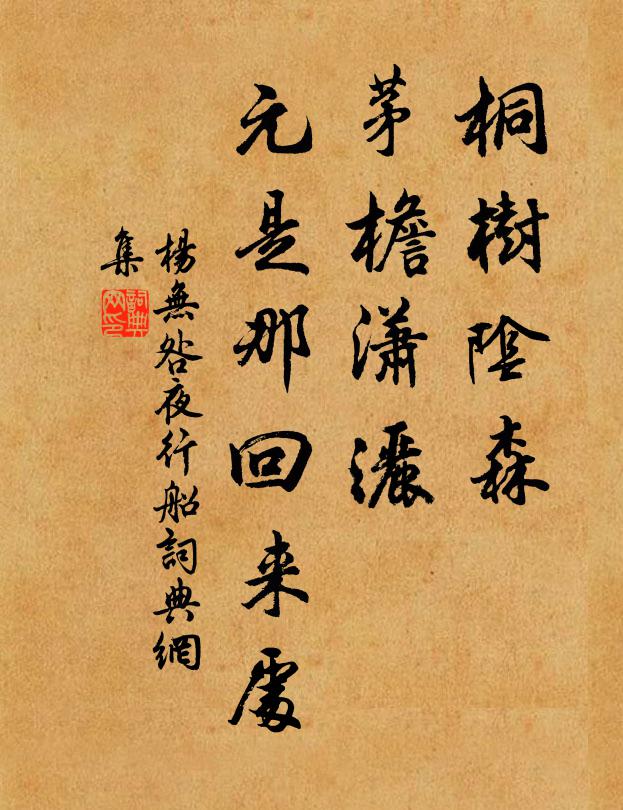 桐樹陰森
茅檐瀟灑
元是那回来處
楊無咎夜行船詞典網
集
詞典
网印